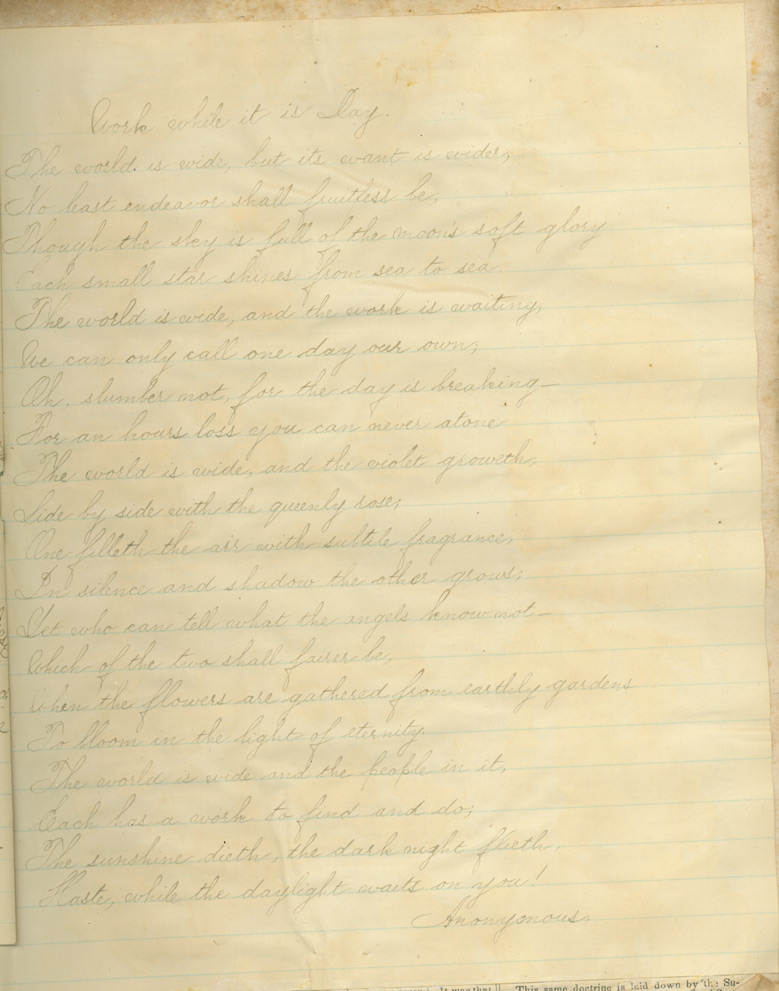 Work while it is Day.
The world is wide, but its want is wider,
No least endeavor shall fruitless be,
Though the sky is full of the moon's soft glory
Each small star shines from sea to sea.
The world is wide, and the work is waiting,
We can only call one day our own;
Oh, slumber not, for the day is breaking—
For an hours loss you can never atone
The world is wide, and the violet groweth,
Side by side with the queenly rose;
One filleth the air with subtile fragrance,
In silence and shadow the other grows;
Yet who can tell what the angels know not—
Which of the two shall fairer be,
When the flowers are gathered from earthly gardens
To bloom in the light of eternity.
The world is wide and the people in it,
Each has a work to find and do;
The sunshine dieth, the dark night flieth,
Haste, while the daylight waits on you!
Anonymous.
It was that This same doctrine is laid down by the Su-